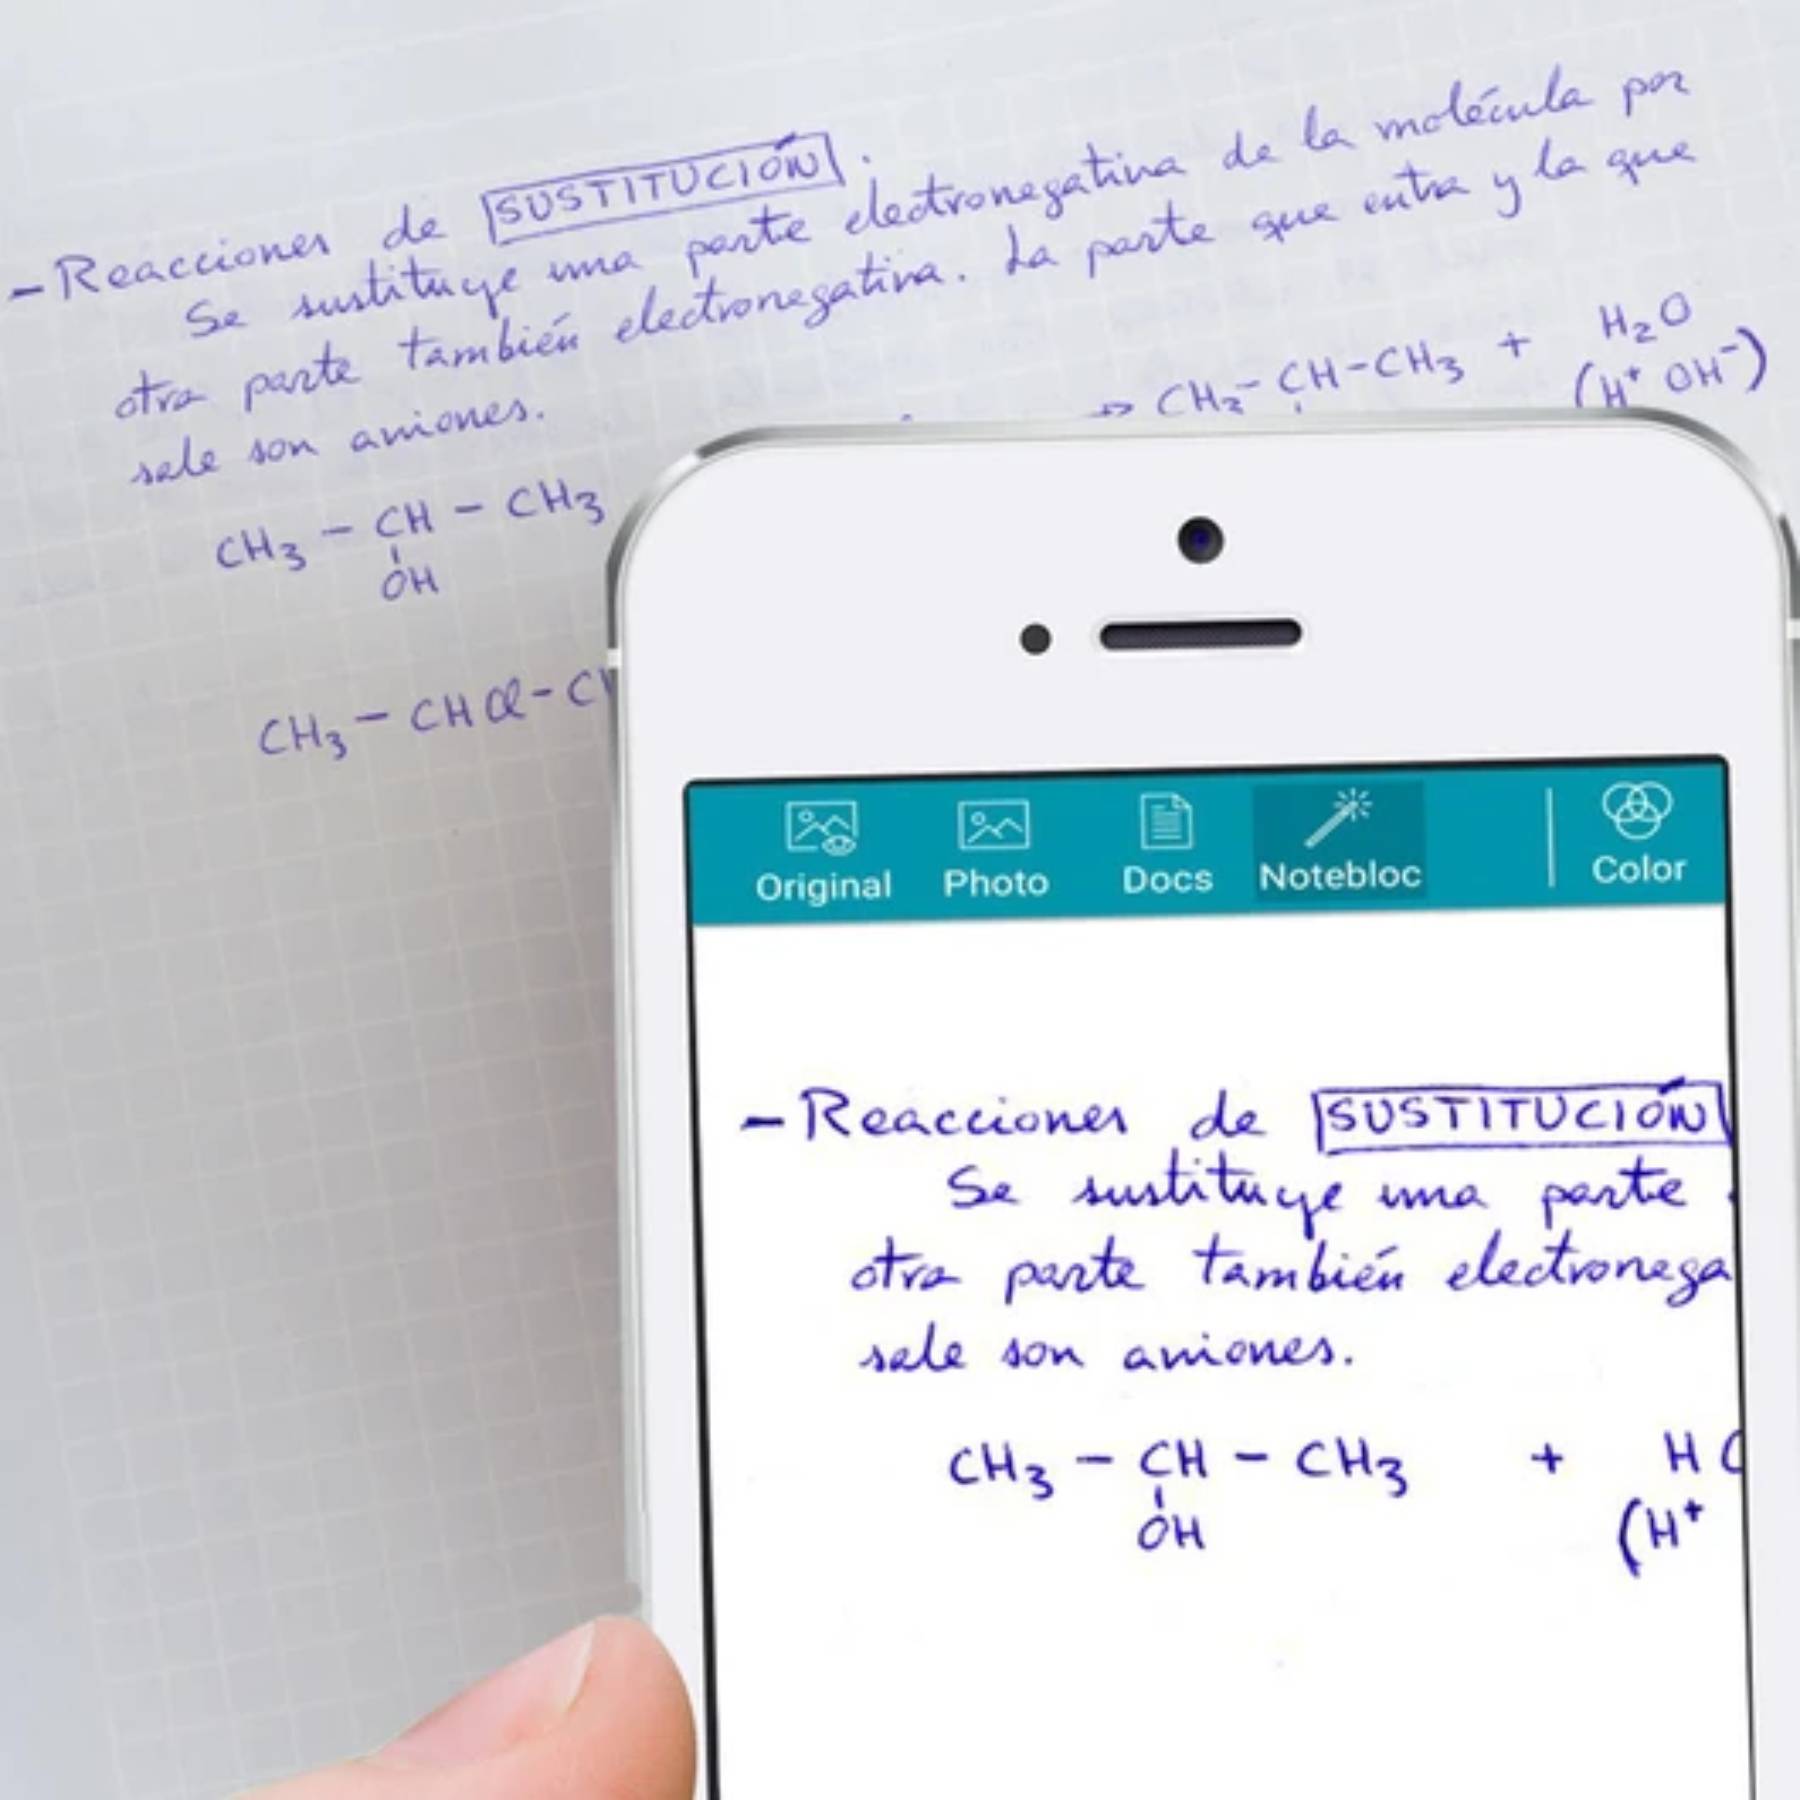 - Reacciones de SUSTITUCIÓN.
Se sustituye una parte electronegativa de la molécula por
otra parte también electronegativa. La parte que entra y la que
sale son aniones.
CH3 - CH - CH3
OH
→ CH3 - CH - CH3 + H2O
(H+ OH-)
CH3 - CHCl - C
Original Photo Docs Notebloc Color
- Reacciones de SUSTITUCIÓN
Se sustituye una parte
otra parte también electronega
sale son aniones.
CH3 - CH - CH3 + H
OH
(H+